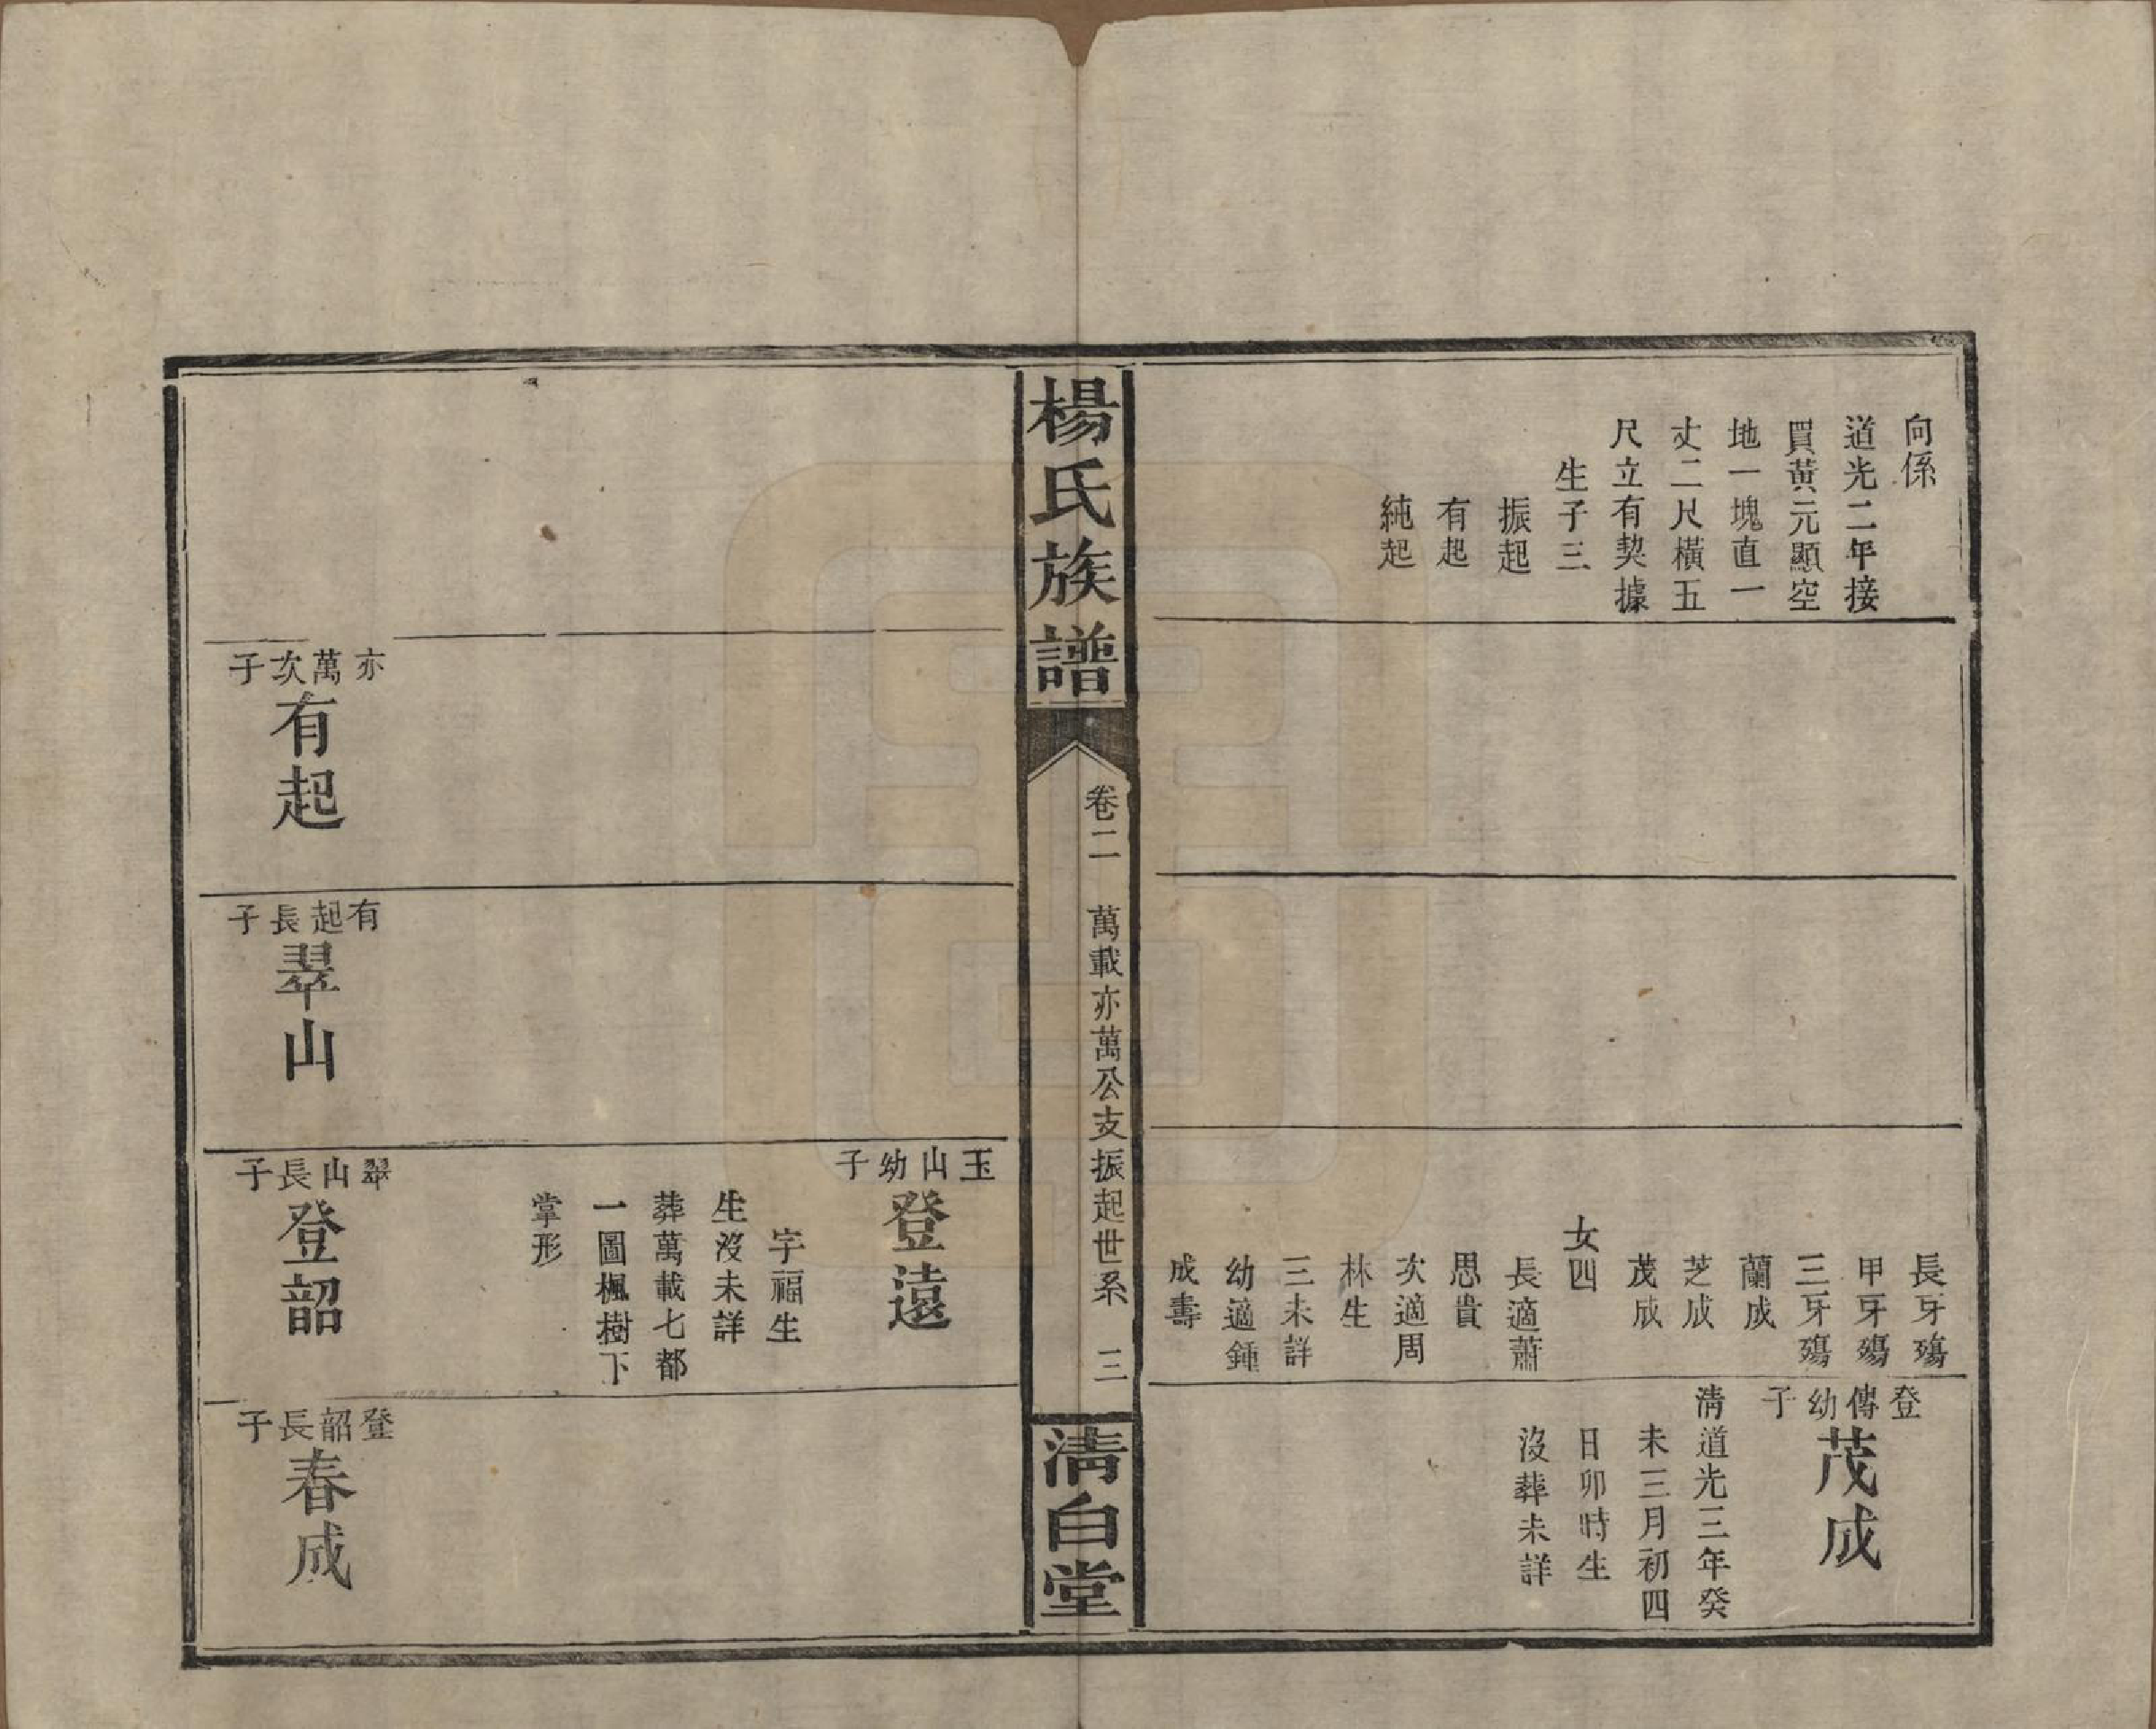 向係
道光二年接
買黃元顯空
地一塊直一
丈二尺橫五
尺立有契據
生子三
振起
有起
純起
長牙殤
甲牙殤
三牙殤
蘭成
芝成
茂成
女四
長適蕭
思貴
次適周
林生
三未詳
幼適鍾
成壽
登傳幼子
茂成
清道光三年癸
未三月初四
日卯時生
沒葬未詳
楊氏族譜
卷二 萬載亦萬公支振起世系 三
清白堂
玉山幼子
登遠
字福生
生沒未詳
葬萬載七都
一圖楓樹下
掌形
亦萬次子
有起
有起長子
翠山
翠山長子
登韶
登韶長子
春成